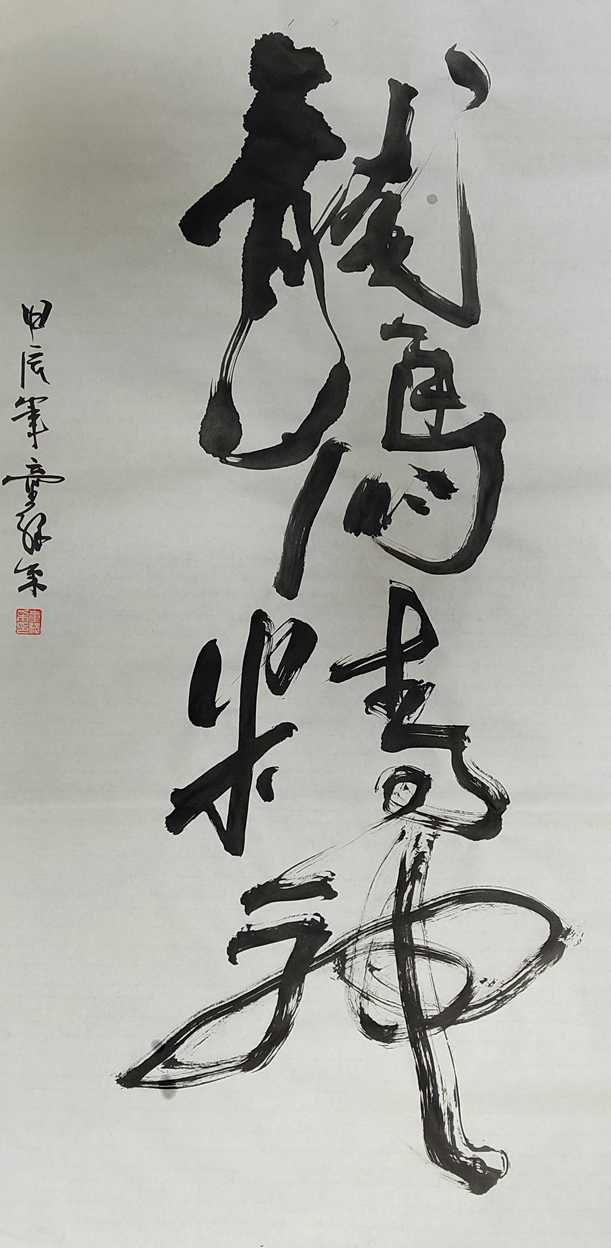 龍馬精神
甲辰年